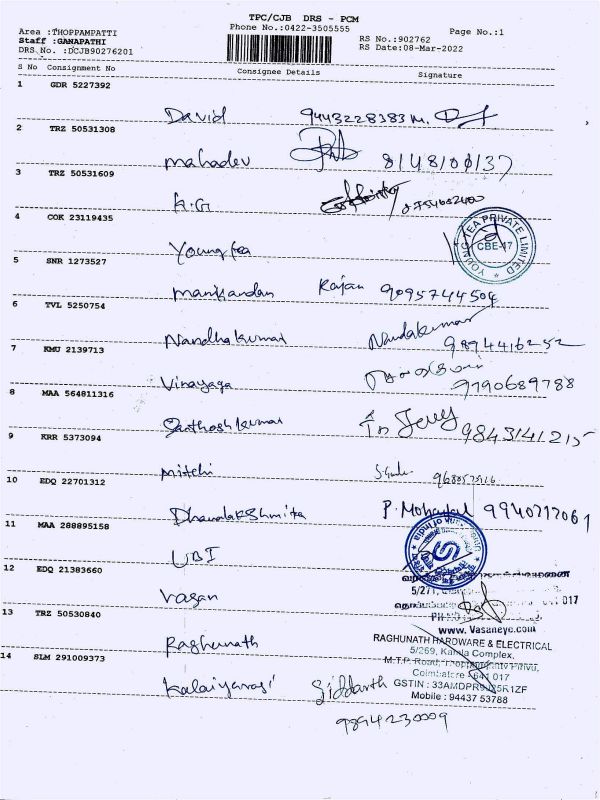 TPC/CJB DRS - PCM
Area :THOPPAMPATTI Phone No.:0422-3505555 Page No.:1
Staff :GANAPATHI RS No.:902762
DRS No. :DCJB90276201 RS Date:08-Mar-2022
S No Consignment No Consignee Details Signature
1 GDR 5227392
David 9443228383
2 TRZ 50531308
Mahadev 8148100137
3 TRZ 50531609
K.G
4 COK 23119435
Young tea
YOUNG TEA PRIVATE LIMITED
CBE-17
5 SNR 1273527
Manikandan Rajan 9095744504
6 TVL 5250754
Nandhakumar Nandakumar
9894416252
7 KMU 2139713
Vinayaga 9790689788
8 MAA 564811316
Santhosh Kumar 9843141215
9 KRR 5373094
Mistchi
10 EDQ 22701312
Dhanalakshmi P. 9940717061
11 MAA 288895158
UBI
5/271, 017
12 EDQ 21383660
Vasan
www.Vasaneye.com
13 TRZ 50530840
Raghunath
RAGHUNATH HARDWARE & ELECTRICAL
5/269, Kamla Complex,
M.T.P. Road,
Coimbatore - 641 017
GSTIN :
Mobile : 94437 53788
14 SLM 291009373
Kalaiyarasi Siddarth
9894230009